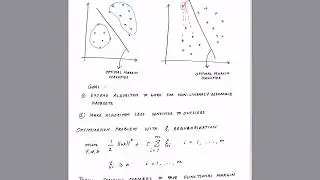 OPTIMAL MARGIN
CLASSIFIER
OPTIMAL MARGIN
CLASSIFIER
GOAL:
① EXTEND ALGORITHM TO WORK FOR NON-LINEARLY SEPARABLE
DATASETS
② MAKE ALGORITHM LESS SENSITIVE TO OUTLIERS
OPTIMIZATION PROBLEM WITH ℓ₁ REGULARIZATION
min 1/2 ||w||² + C Σ ξᵢ i = 1, ..., m
ξᵢ ≥ 0 i = 1, ..., m
FUNCTIONAL MARGIN